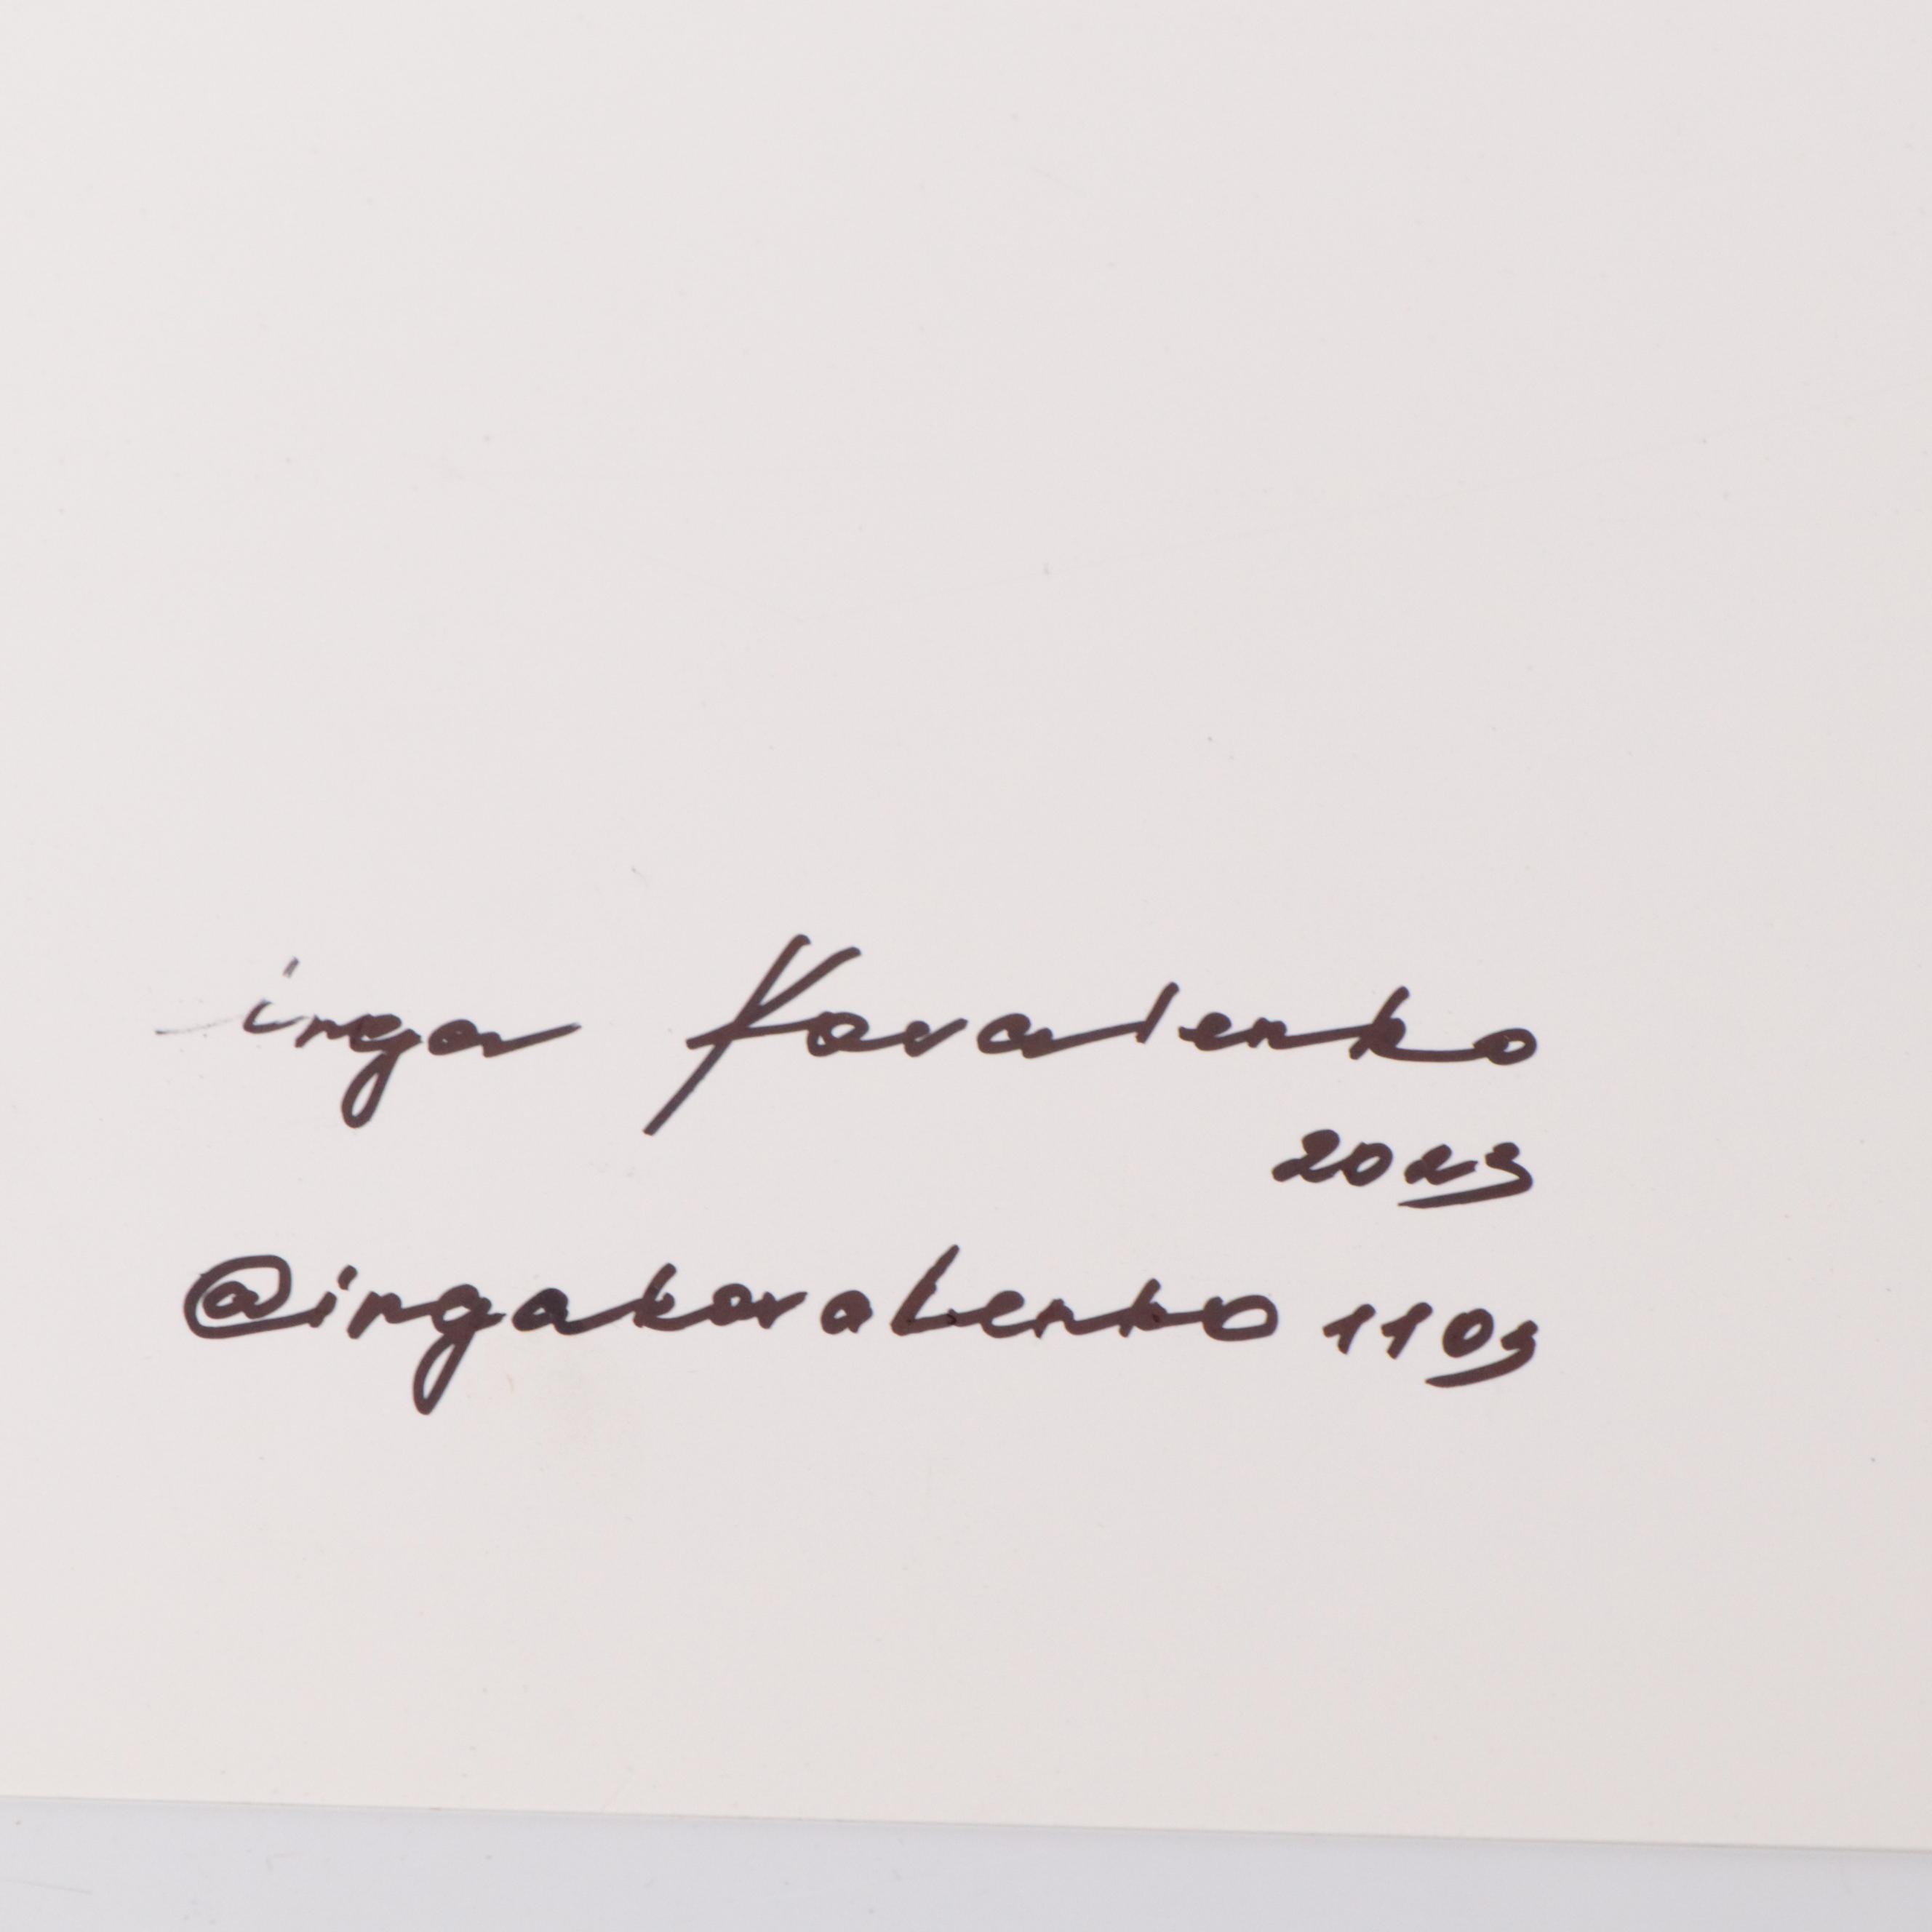 inga Kovalenko
2023
@ingakovalenko1103